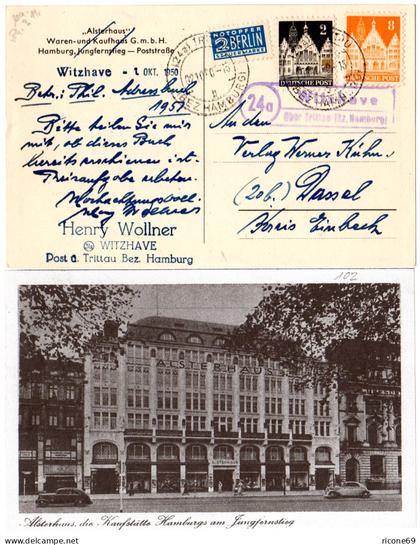 „Alsterhaus"
Waren- und Kaufhaus G. m. b. H.
Hamburg, Jungfernstieg — Poststraße
NOTOPFER
2 BERLIN
STEUERMARKE
2
DEUTSCHE POST
8
DEUTSCHE POST
Witzhave - 1. OKT. 1950
Betr.: Phil. Adressbuch
1951
Bitte teilen Sie mir
mit, ob dieses Buch
bereits erschienen ist.
Preisaufgabe erbeten.
Hochachtungsvoll
Henry Wollner
Henry Wollner
24a WITZHAVE
Post ü. Trittau Bez. Hamburg
(BEZ. HAMBURG)
24a
Witzhave
über Trittau (Bz. Hamburg)
An den
Verlag Werner Kühn,
(20b) Dassel
Kreis Einbeck
102
ALSTERHAUS
ALSTERHAUS
Alsterhaus, die Kaufstätte Hamburgs am Jungfernstieg
delcampe.net
ricone69